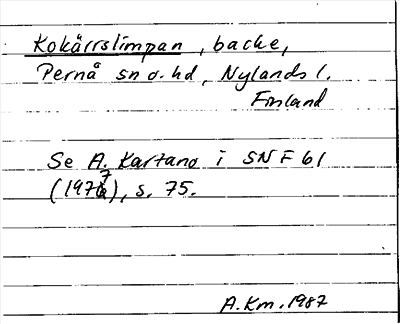 Kokärrslimpan, backe,
Pernå sn o. hd, Nylands l.
Finland
Se A. Kartano i SNF 61
(1977), s. 75.
A.Km. 1987